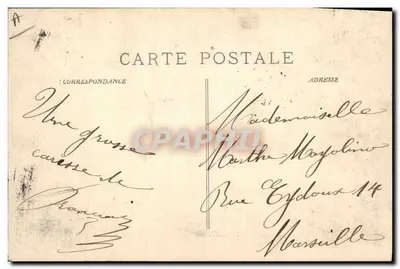 A
CARTE POSTALE
CORRESPONDANCE
ADRESSE
Une grosse
caresse de
Mademoiselle
Marthe Mayolino
Rue Eydoux 14
Marseille
CPAPHIL